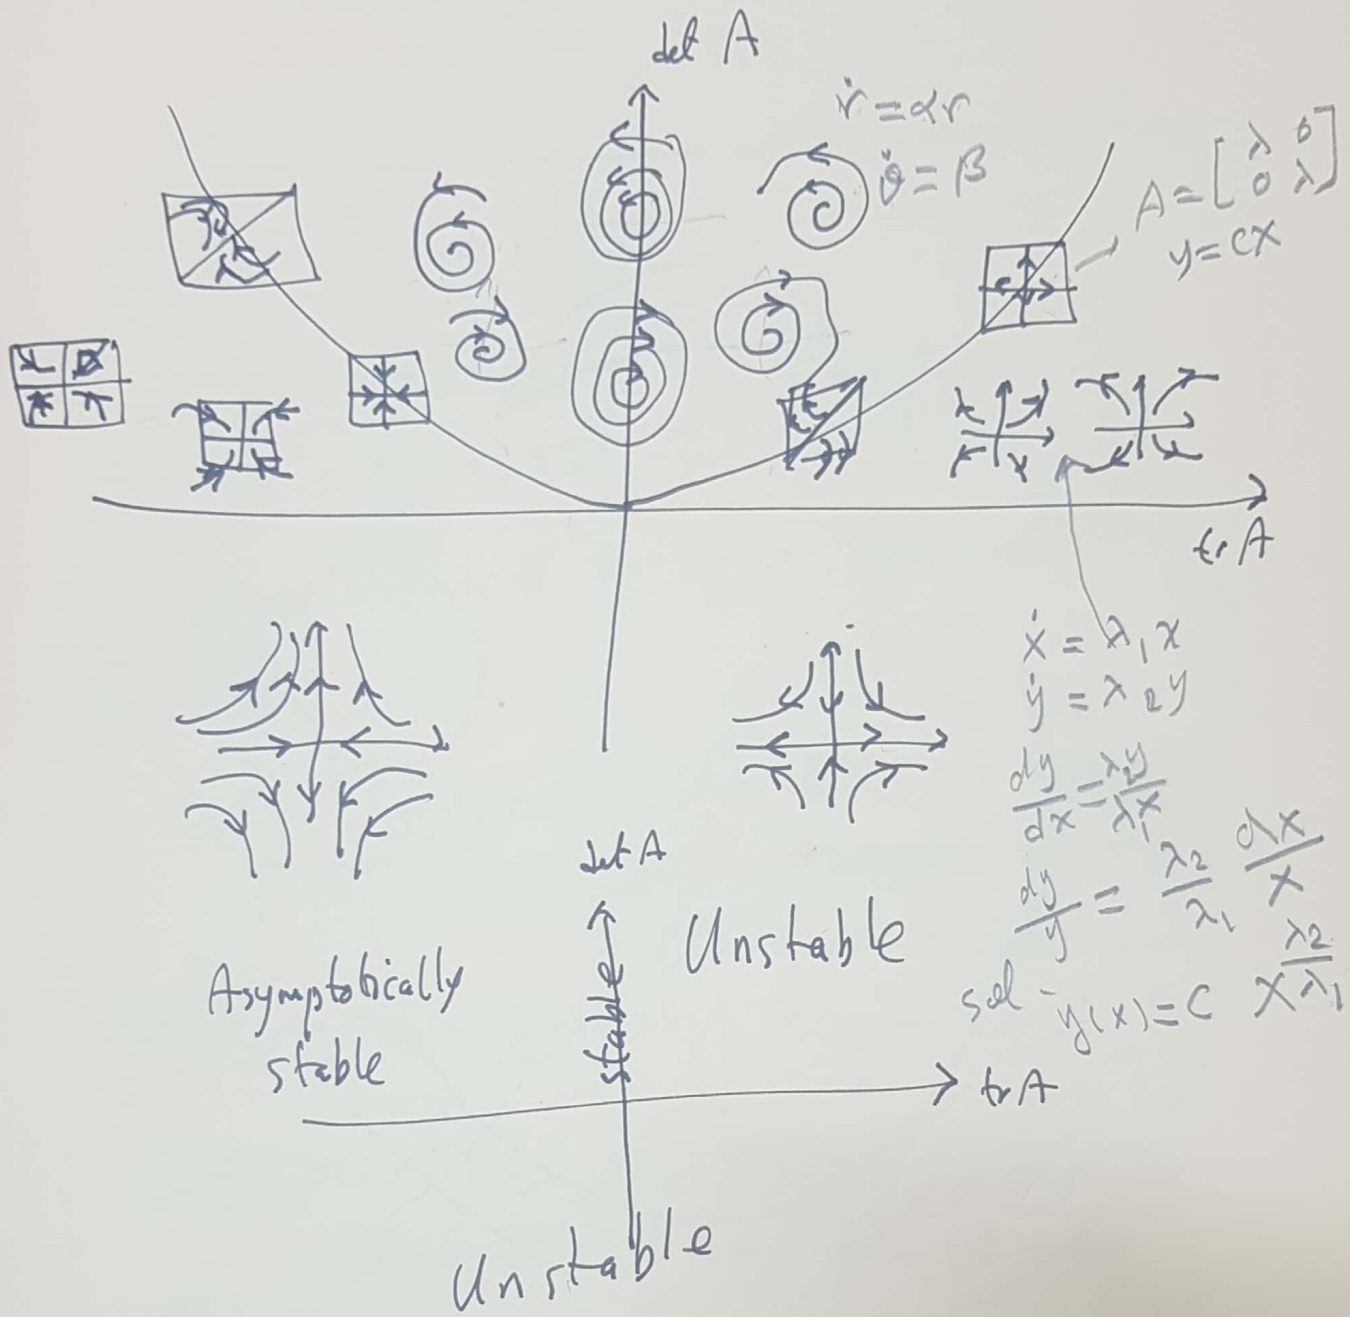 det A
ṙ = αr
θ̇ = β
A = [λ 0
0 λ]
y = cx
tr A
ẋ = λ₁x
ẏ = λ₂y
dy/dx = λ₂y/λ₁x
dy/y = λ₂/λ₁ dx/x
sol - y(x) = C x^(λ₂/λ₁)
det A
Unstable
Asymptotically
stable
stable
tr A
Unstable